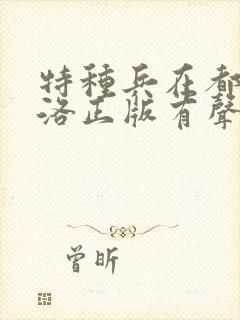 特種兵在都
洛正版有聲
曾昕